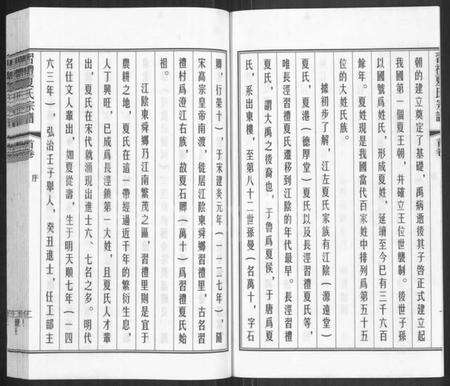 習禮夏氏宗譜
首卷
朝的建立奠定了基礎，禹病逝後其子啓正式建立起
我國第一個夏王朝，并確立王位世襲制。後世子孫
以國號爲姓氏，形成夏姓，延續至今已有三千六百
餘年。夏姓現是我國當代百家姓中排列爲第五十五
位的大姓氏族。
據初步了解，江左夏氏家族有江陰（源遠堂）
夏氏，夏港（德厚堂）夏氏以及長涇習禮夏氏等，
唯長涇習禮夏氏遷移到江陰的年代最早。長涇習禮
夏氏，謂大禹之後裔也，于魯爲夏侯，于唐爲夏
氏，系出東樓，至第八十二世孫曼（名萬十，字石
卿，行榮十）于宋建炎元年（一一二七年），隨
宋高宗皇帝南渡，徙居江陰東舜鄉習禮里，古名習
禮村爲澄江右族，故夏石卿（萬十）爲習禮夏氏始
祖。
江陰東舜鄉乃江南繁茂之區，習禮里則是宜于
農耕之地，夏氏在這一帶經過近千年的繁衍生息，
人丁興旺，已成爲長涇鎮第一大姓，且夏氏人才輩
出，夏氏在宋代就涌現出進士六、七名之多。明代
名仕文人輩出，如夏從壽，生于明天順七年（一四
六三年），弘治壬子舉人，癸丑進士，任工部主
習禮夏氏宗譜
首卷
序